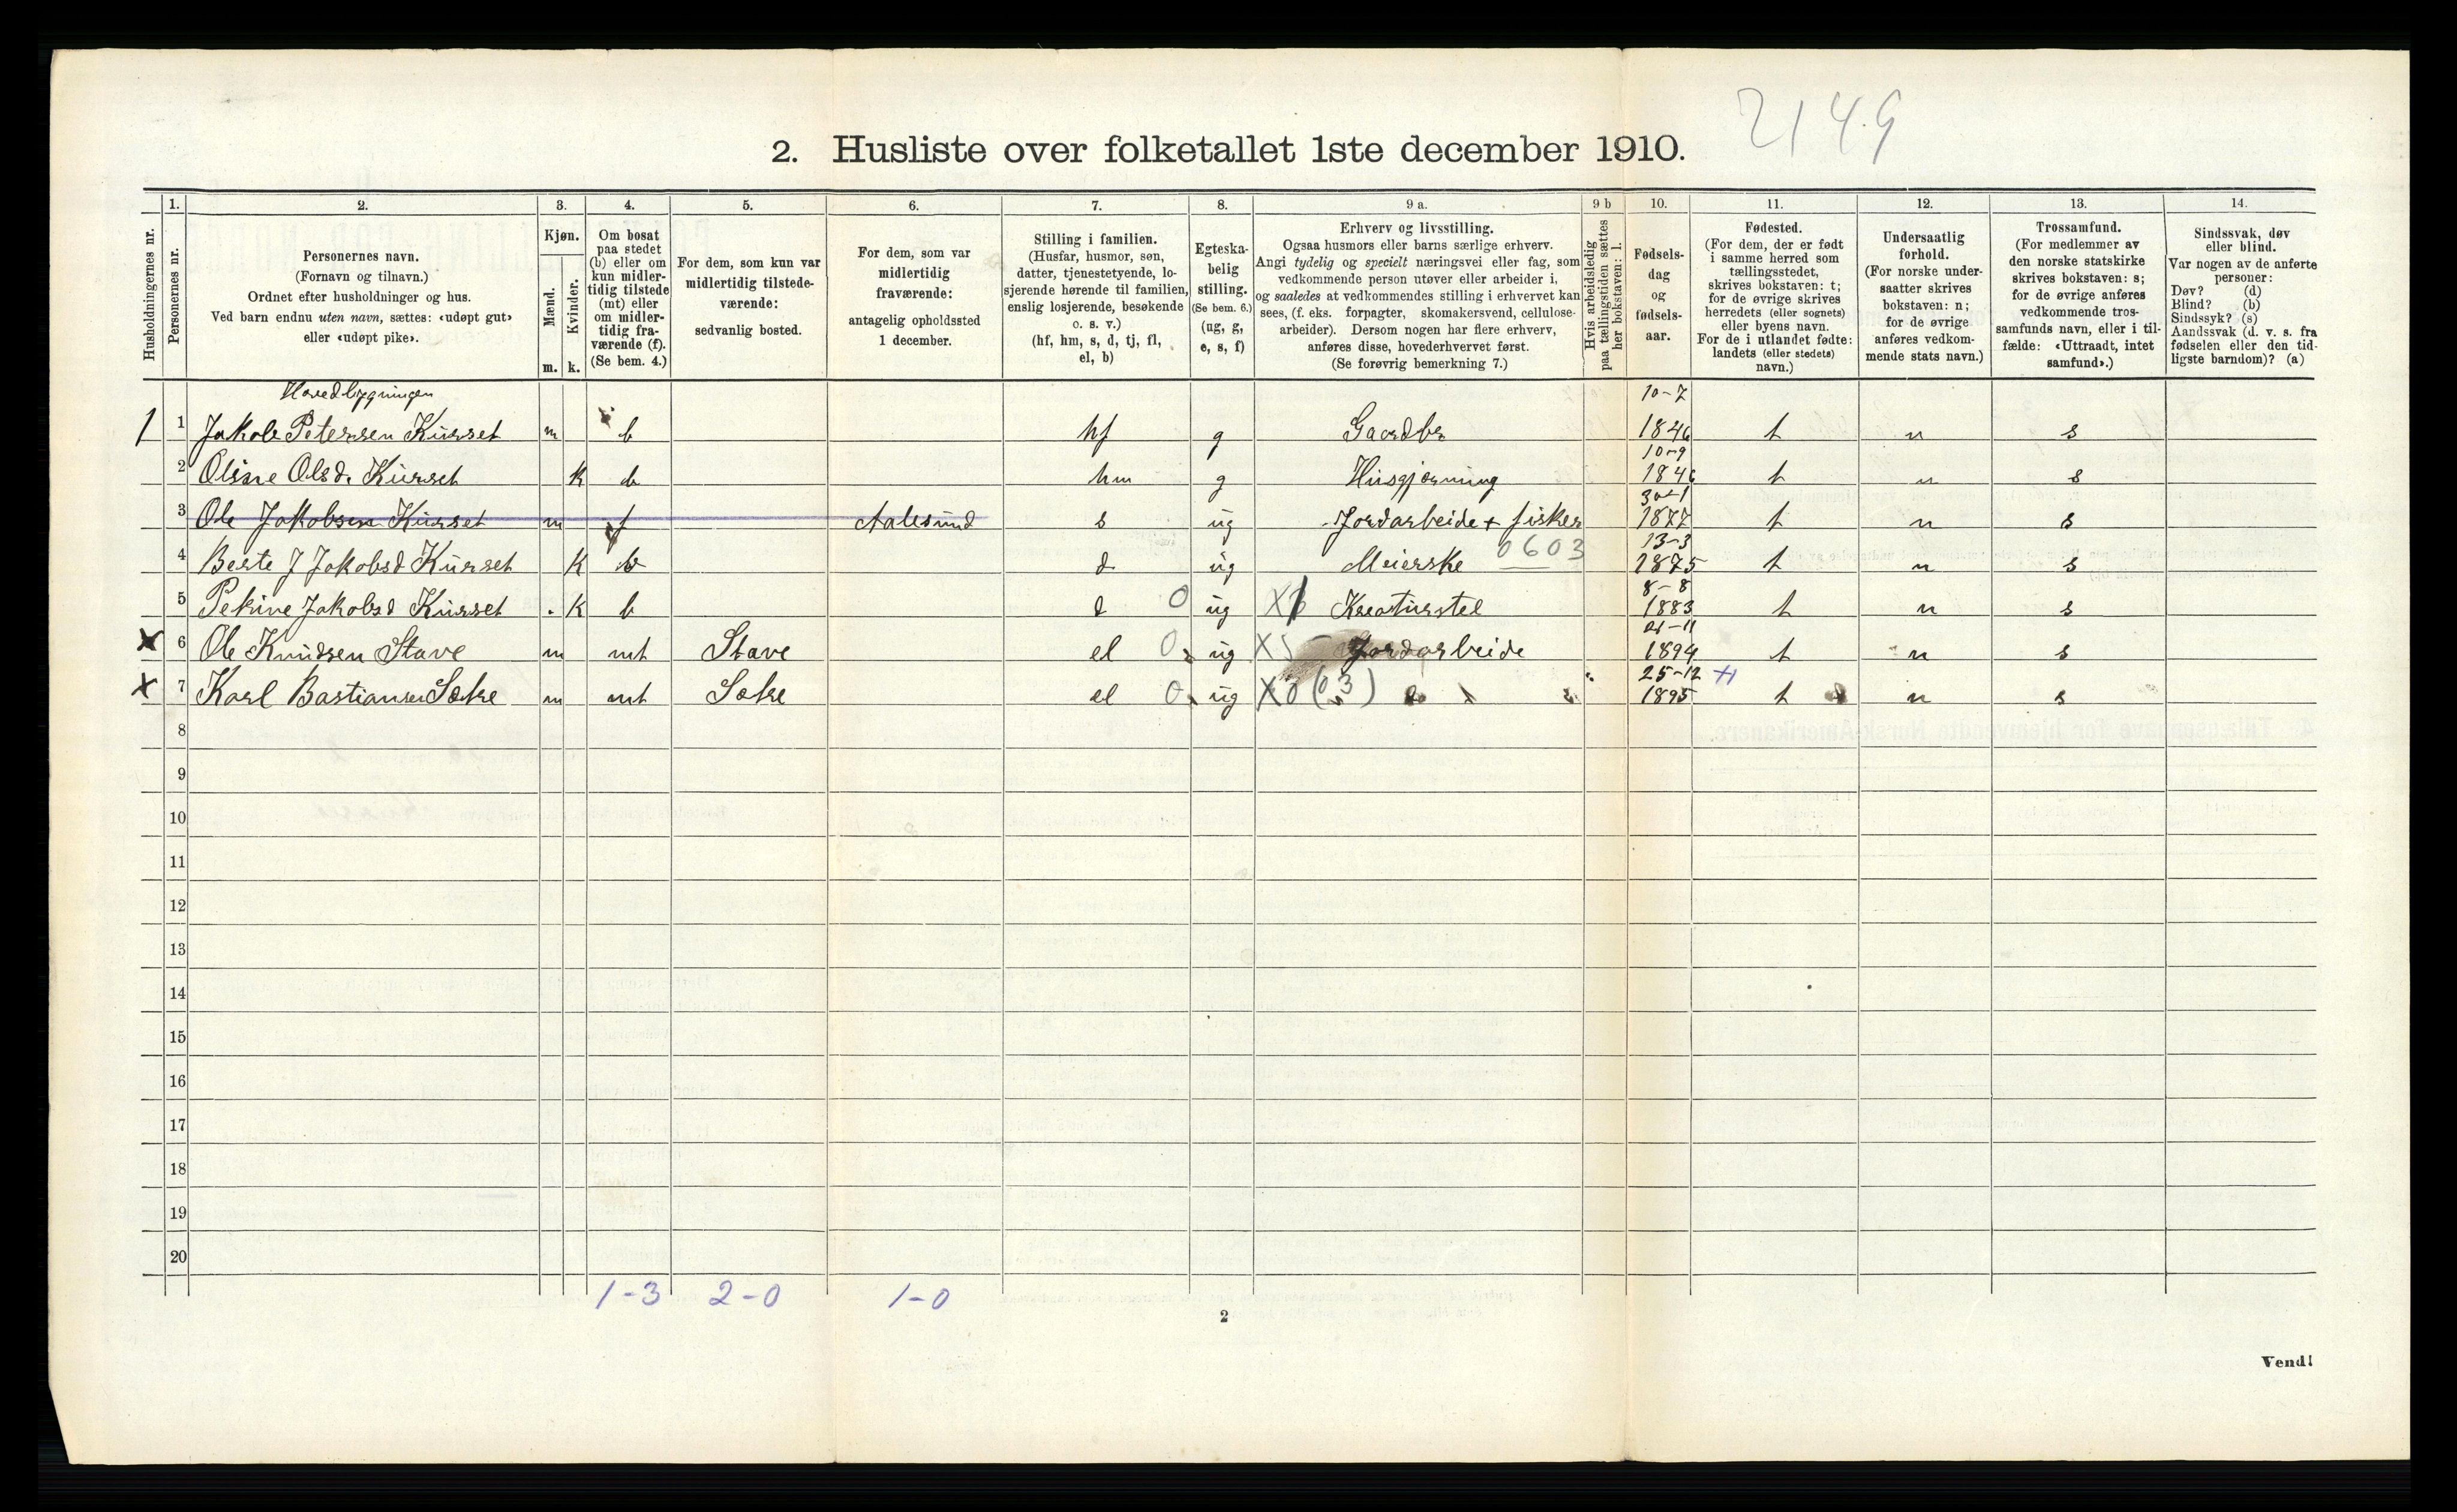 2149
2. Husliste over folketallet 1ste december 1910.
Husholdningernes nr.
1. Personernes nr.
2. Personernes navn.
(Fornavn og tilnavn.)
Ordnet efter husholdninger og hus.
Ved barn endnu uten navn, sættes: «udøpt gut»
eller «udøpt pike».
3. Kjøn.
Mænd. Kvinder.
m. k.
4. Om bosat
paa stedet
(b) eller om
kun midler-
tidig tilstede
(mt) eller
om midler-
tidig fra-
værende (f).
(Se bem. 4.)
5. For dem, som kun var
midlertidig tilstede-
værende:
sedvanlig bosted.
6. For dem, som var
midlertidig
fraværende:
antagelig opholdssted
1 december.
7. Stilling i familien.
(Husfar, husmor, søn,
datter, tjenestetyende, lo-
sjerende hørende til familien,
enslig losjerende, besøkende
o. s. v.)
(hf, hm, s, d, tj, fl,
el, b)
8. Egteska-
belig
stilling.
(Se bem. 6.)
(ug, g,
e, s, f)
9 a. Erhverv og livsstilling.
Ogsaa husmors eller barns særlige erhverv.
Angi tydelig og specielt næringsvei eller fag, som
vedkommende person utøver eller arbeider i,
og saaledes at vedkommendes stilling i erhvervet kan
sees, (f. eks. forpagter, skomakersvend, cellulose-
arbeider). Dersom nogen har flere erhverv,
anføres disse, hovederhvervet først.
(Se forøvrig bemerkning 7.)
9 b Hvis arbeidsledig
paa tællingstiden sættes
her bokstaven: l.
10. Fødsels-
dag
og
fødsels-
aar.
11. Fødested.
(For dem, der er født
i samme herred som
tællingsstedet,
skrives bokstaven: t;
for de øvrige skrives
herredets (eller sognets)
eller byens navn.
For de i utlandet fødte:
landets (eller stedets)
navn.)
12. Undersaatlig
forhold.
(For norske under-
saatter skrives
bokstaven: n;
for de øvrige
anføres vedkom-
mende stats navn.)
13. Trossamfund.
(For medlemmer av
den norske statskirke
skrives bokstaven: s;
for de øvrige anføres
vedkommende tros-
samfunds navn, eller i til-
fælde: «Uttraadt, intet
samfund».)
14. Sindssvak, døv
eller blind.
Var nogen av de anførte
personer:
Døv? (d)
Blind? (b)
Sindssyk? (s)
Aandssvak (d. v. s. fra
fødselen eller den tid-
ligste barndom)? (a)
Hovedbygningen
1 1 Jakob Petersen Kurset m b hf g Gaardbr 10-7 1846 t n s
2 Olsine Olsd. Kurset k b hm g Husgjerning 10-9 1846 t n s
3 Ole Jakobsen Kurset m f Aalesund s ug Jordarbeide + fisker 30-1 1877 t n s
4 Berte J Jakobsd Kurset k b d ug Meierske 0603 13-3 1875 t n s
5 Pekine Jakobsd Kurset k b d 0 ug Kreaturstel 8-8 1883 t n s
x 6 Ole Knudsen Stave m mt Stave el 0 ug X5 Jordarbeide 21-11 1894 t n s
x 7 Karl Bastiansen Sætre m mt Sætre el 0 ug X0 (03) 25-12 1895 t n s
8
9
10
11
12
13
14
15
16
17
18
19
20
1-3 2-0 1-0
2
Vend!